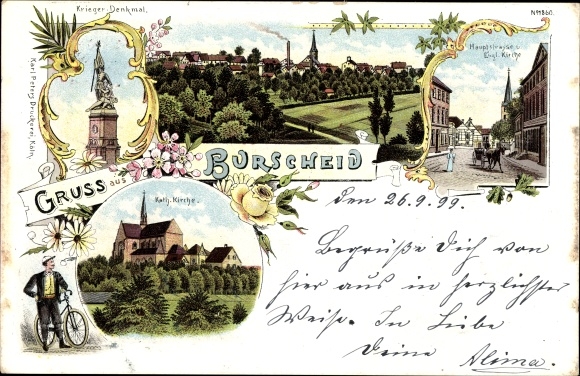 Krieger-Denkmal.
No 1860.
Karl Peters Druckerei, Köln.
Hauptstrasse u.
Evgl. Kirche
GRUSS aus
BURSCHEID
Kath. Kirche.
Den 26.9.99.
Begrüße Dich von
hier aus in herzlichster
Weise. In Liebe
Deine Alima.